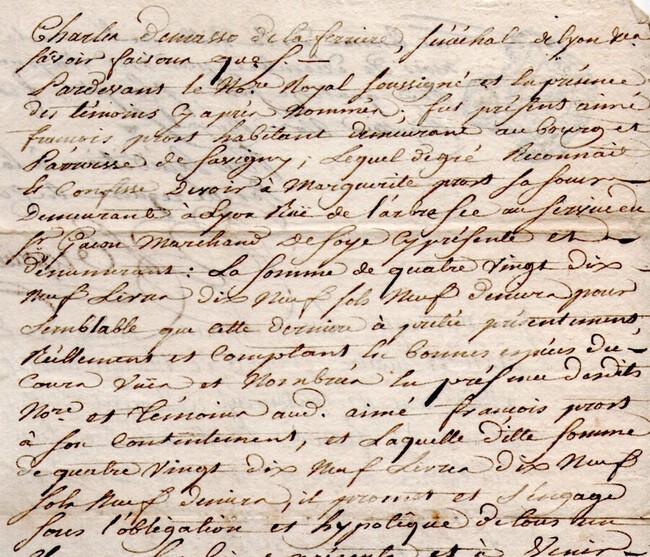 Charles demasso de la ferriere, sénéchal de lyon &ca
savoir faisons que s.
Pardevant le No.re Royal soussigné et en présence
des témoins cy après nommés, fut présent aimé
françois prost habitant demeurant au bourg et
Parroisse de savigny, Lequel de gré Reconnait
et Confesse devoir à Marguerite prost sa soeur
demeurant à Lyon Rüe de l'arra sec au service du
sr. Gacon Marchand de soye cy présente et
demeurant : La somme de quatre vingt dix
Neuf Livres dix Neuf sols Neuf deniers pour
semblable que cette derniere à pretée présentement
Réellement et Comptant en bonnes espéces du
Cours vues et Nombrées en présence desdits
No.re et témoins aud. aimé françois prost
à son Contentement, et Laquelle ditte somme
de quatre vingt dix Neuf Livres dix Neuf
sols Neuf deniers, il promet et s'engage
sous l'obligation et hypotêque de tous ses
présents et à venir